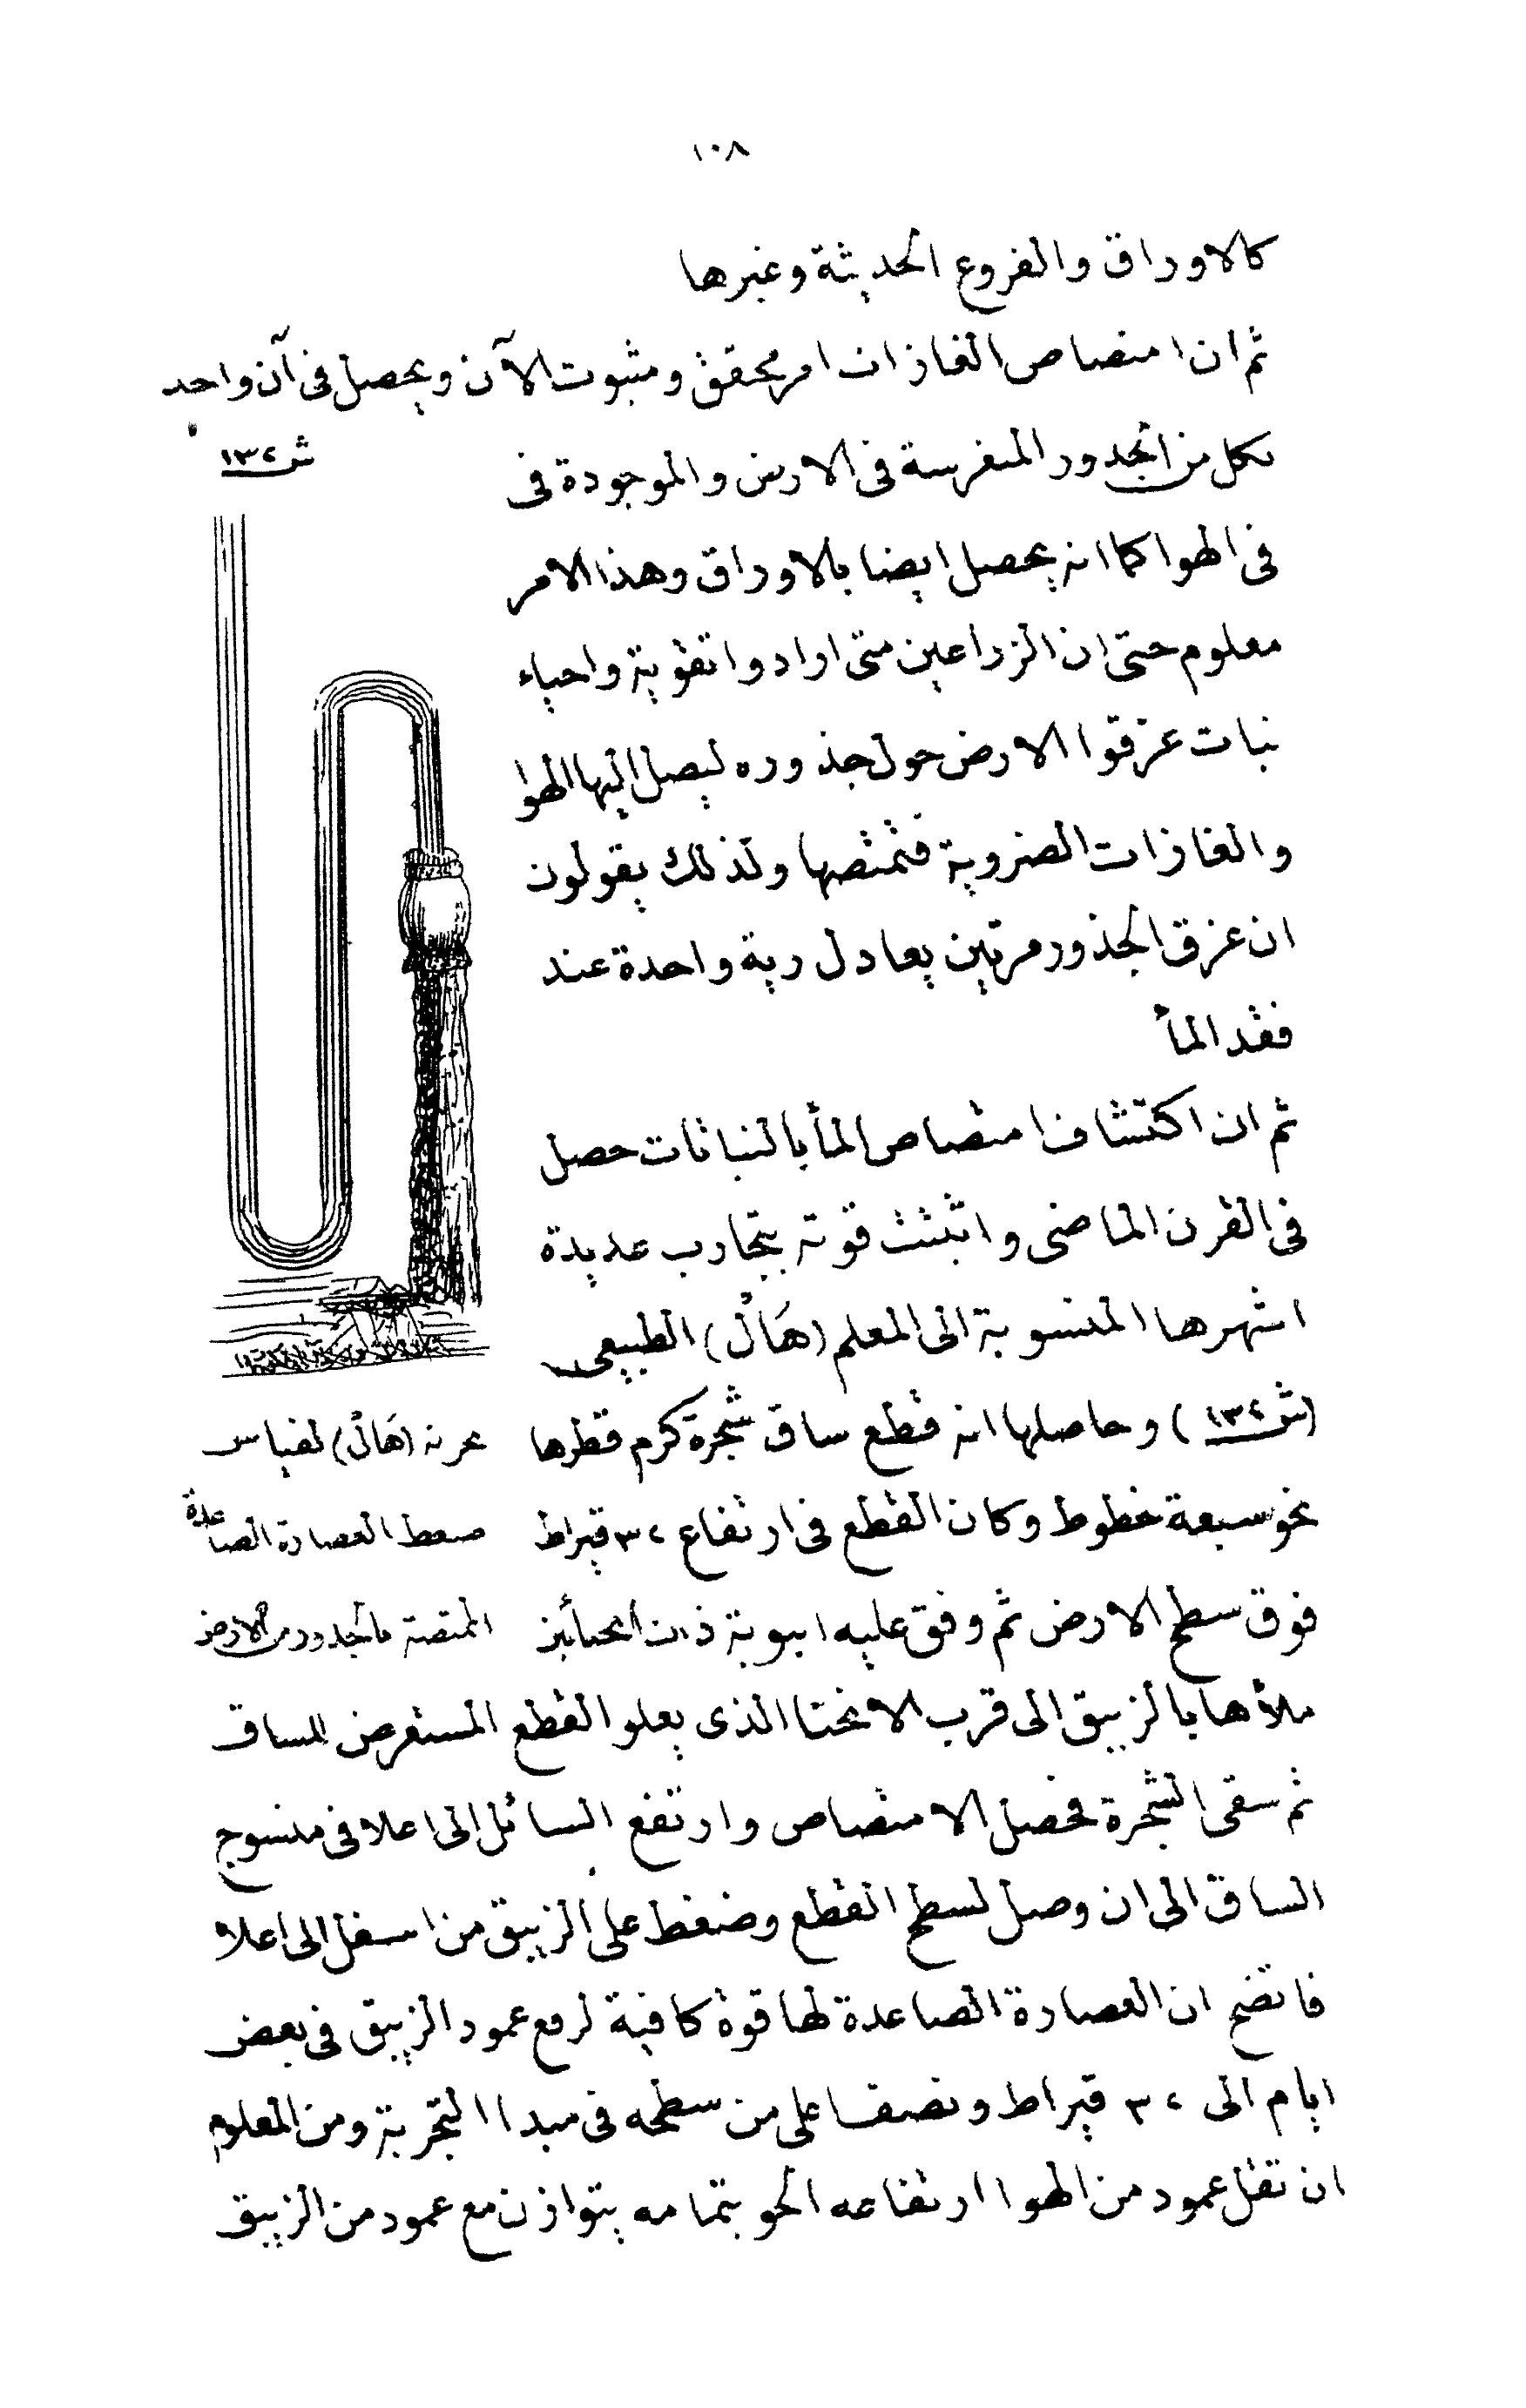 ١٠٨
كالاوراق والفروع الحديثة وغيرها
ثم ان امتصاص الغازات امر محقق ومثبوت الآن ويحصل فى آن واحد
بكل من الجذور المنغرسة فى الارض والموجودة فى
فى الهوا كما انه يحصل ايضا بالاوراق وهذا الامر
معلوم حتى ان الزراعين متى ارادوا تقوية واحياء
نبات عزقوا الارض حول جذوره ليصل اليها الهوا
والغازات الضروية فتمتصها ولذلك يقولون
ان عزق الجذور مرتين يعادل رية واحدة عند
فقد المأ
ثم ان اكتشاف امتصاص المأ بالنباتات حصل
فى القرن الماضى واثبتت قوته بتجارب عديدة
اشهرها المنسوبة الى المعلم (هَالْ) الطبيعى
(ش ١٣٢) وحاصلها انه قطع ساق شجرة كرم قطرها
نحو سبعة خطوط وكان القطع فى ارتفاع ٣٢ قيراط
فوق سطح الارض ثم وفق عليه انبوبة ذات انحنأين
ملأها بالزيبق الى قرب الانحنا الذى يعلو القطع المستعرض للساق
ثم سقى الشجرة فحصل الامتصاص وارتفع السائل الى اعلا فى منسوج
الساق الى ان وصل لسطح القطع وضغط على الزيبق من اسفل الى اعلا
فاتضح ان العصارة الصاعدة لها قوة كافية لرفع عمود الزيبق فى بعض
ايام الى ٣٢ قيراط ونصف اعلى من سطحه فى مبدا التجربة ومن المعلوم
ان ثقل عمود من الهوا ارتفاعه الجو بتمامه يتوازن مع عمود من الزيبق
ش ١٣٢
تجربة (هَالْ) لقياس
ضغط العصارة الصاعدة
الممتصة بالجذور من الارض